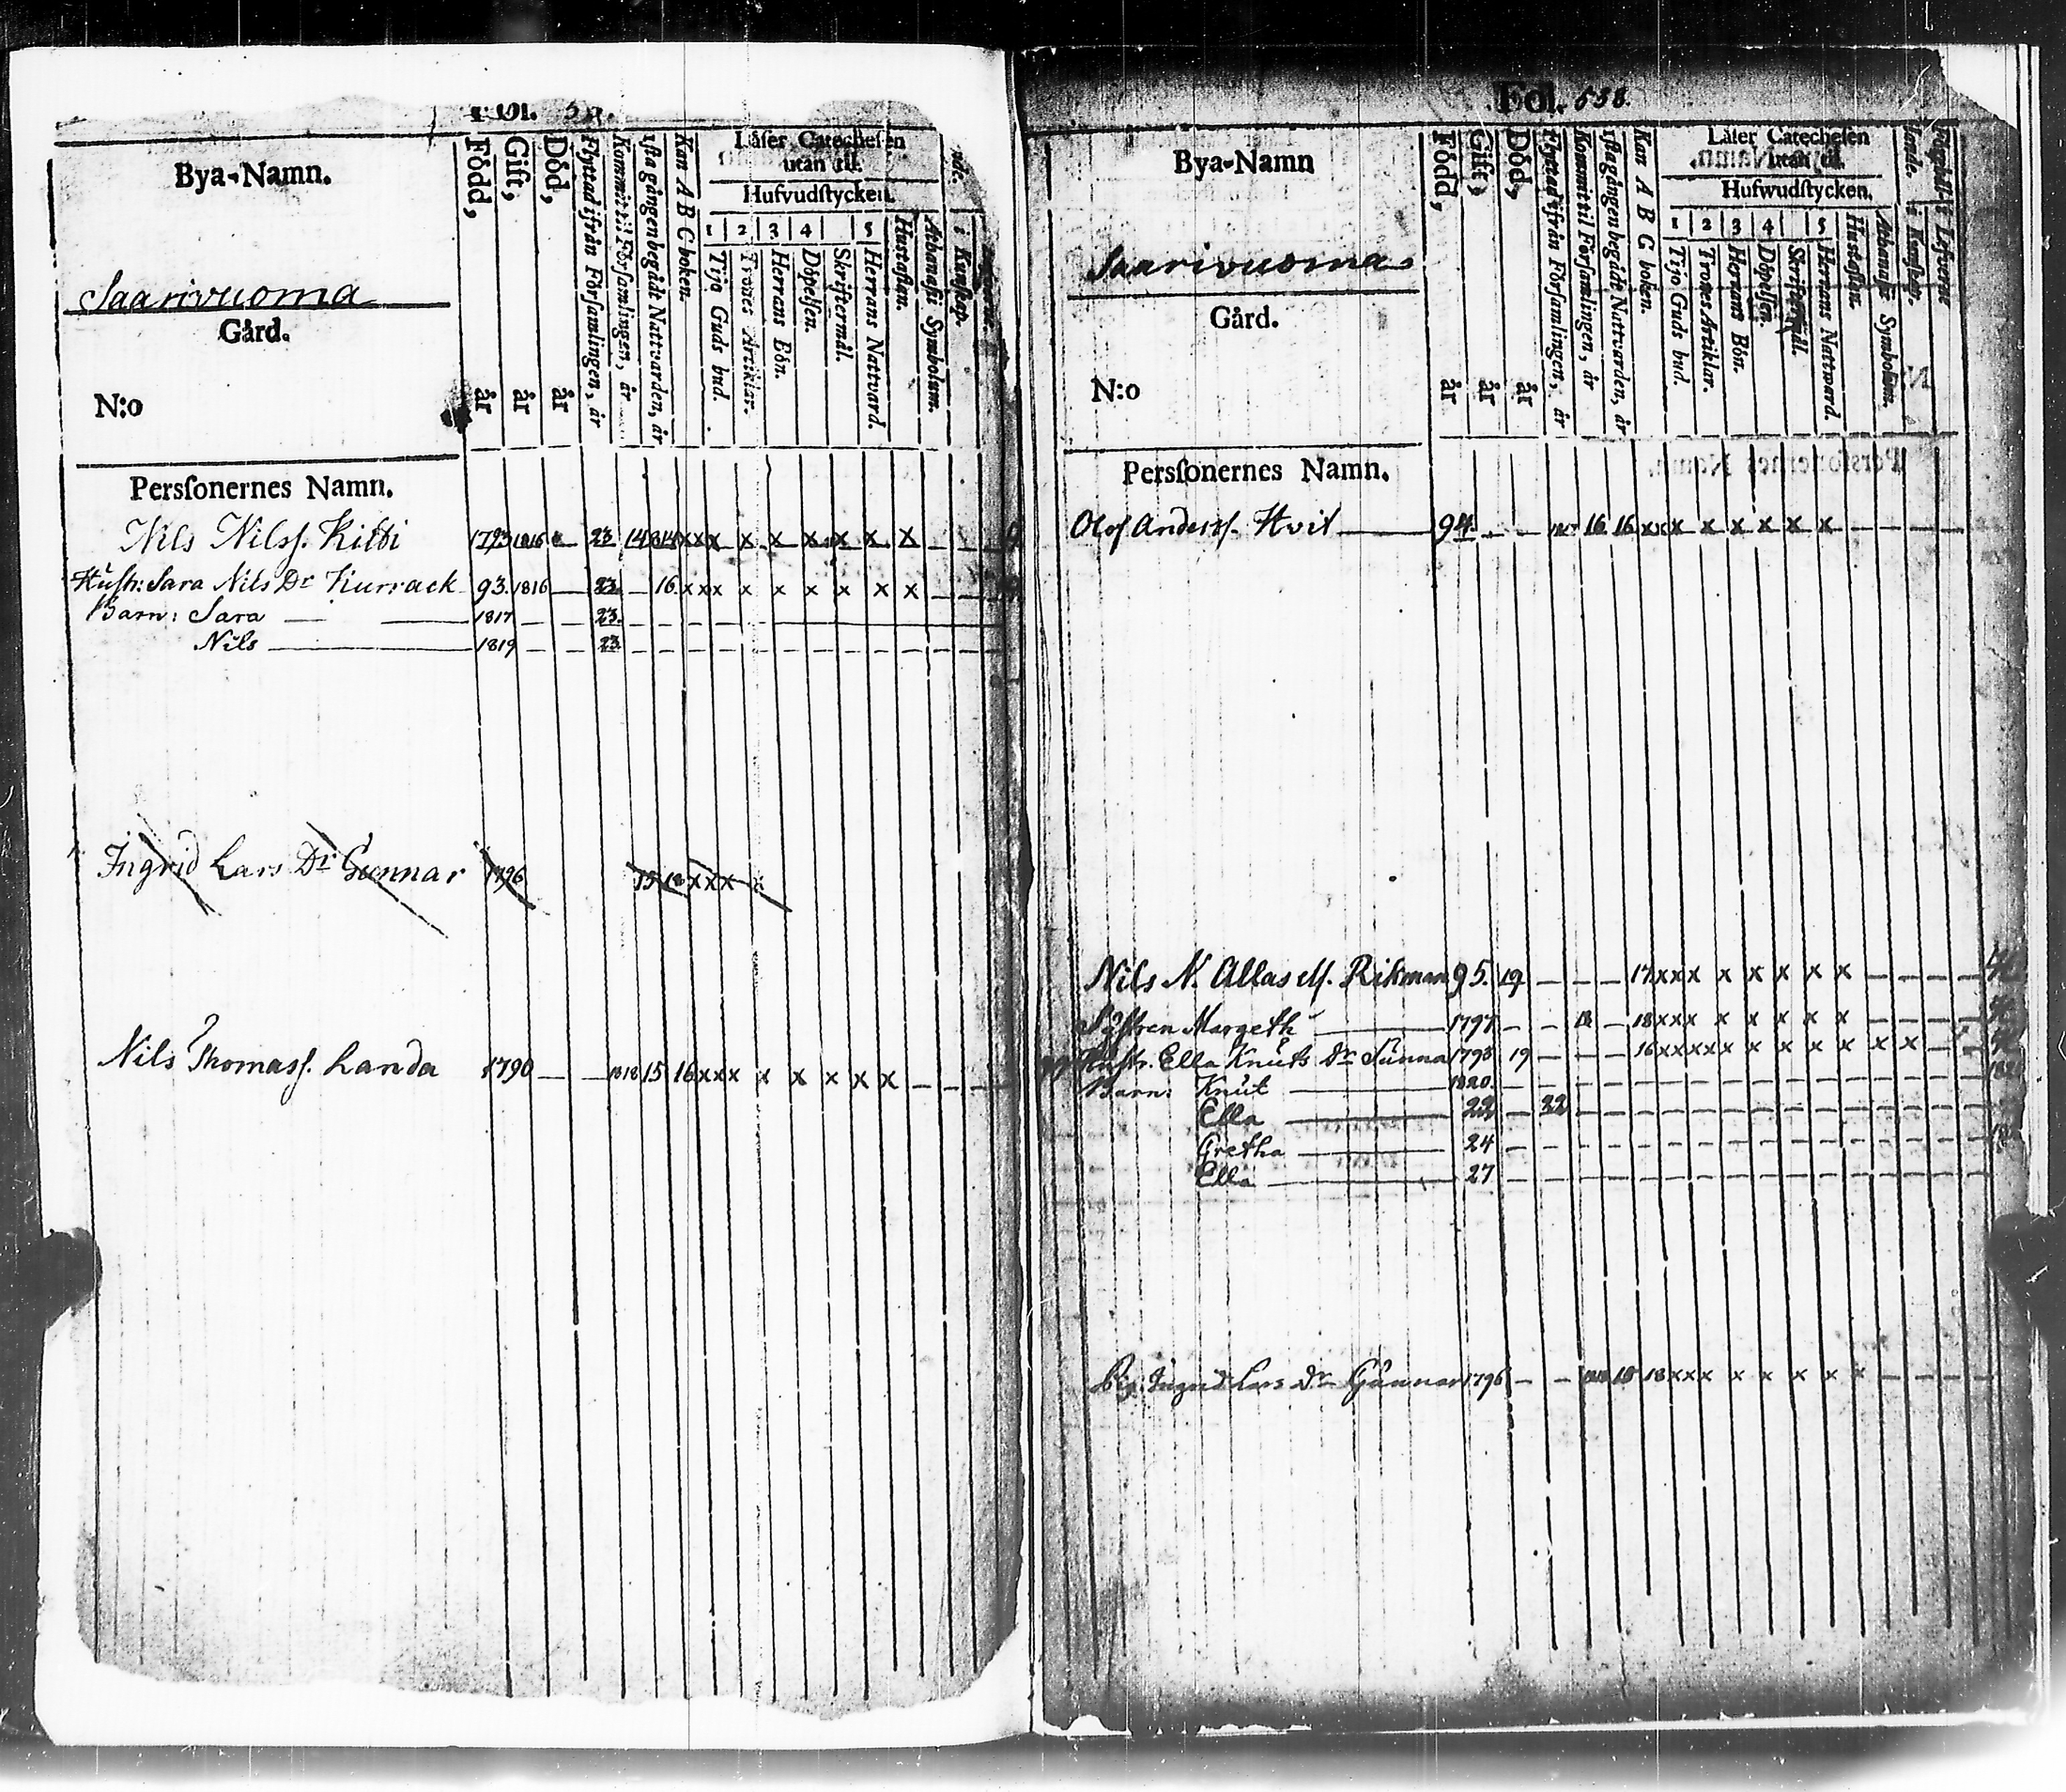 Fol.
Bya-Namn.
Saarivuoma
Gård.
N:o
Född, år
Gift, år
Död, år
Flyttad ifrån Församlingen, år
Kommit til Församlingen, år
1sta gången begådt Nattvarden, år
Kan A B C boken.
Låser Catechesen utan til.
Hufvudstycken.
1 2 3 4 5
Tijo Guds bud.
Trones Artiklar.
Herrans Bön.
Döpelsen.
Skriftermål.
Herrans Nattvard.
Hustaflan.
Athanasii Symbolum.
i Kunskap.
Personernes Namn.
Nils Nilss. Kitti 1793 1816 — 23 14 x x x x x x x x x
Hustr: Sara Nils Dr Kurrack 93. 1816 — 23. — 16. x x x x x x x x x
Barn: Sara — 1817 — — 23.
Nils — 1819 — — 23
Ingrid Lars Dr Gunnar 1796 15 18 x x x x
Nils Thomass. Landa 1790 — — 1818 15 16 x x x x x x x x
Fol. 538.
Bya-Namn
Saarivuoma
Gård.
N:o
Född, år
Gift, år
Död, år
Flyttad ifrån Församlingen, år
Kommit til Församlingen, år
1sta gången begådt Nattvarden, år
Kan A B C boken.
Låser Catechesen utan til.
Hufwudstycken.
1 2 3 4 5
Tijo Guds bud.
Trones Artiklar.
Herrans Bön.
Döpelsen.
Skriftermål.
Herrans Nattvard.
Hustaflan.
Athanasii Symbolum.
i Kunskap.
i Lefverne
Personernes Namn.
Olof Anderss. Hvit 94. — — 16 16 x x x x x x x x
Nils N. Allas M. Rikman 95. 19 — — — 17 x x x x x x x x
Systren Margeth — 1797 — — 18 — 18 x x x x x x x x
Hustr. Ella Knuts Dr Sunna 1793 19 — — — 16 x x x x x x x x x x
Barn: Knut — 1820.
Ella — 22 — 22
Gretha — 24
Ella — 27
Pig. Ingrid Lars Dr Gunnar 1796 — — 15 18 x x x x x x x x